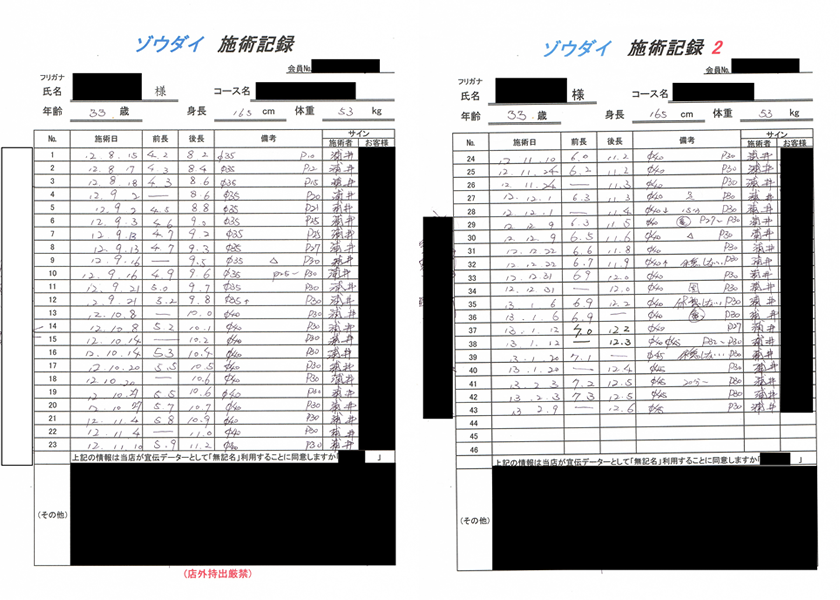 ゾウダイ 施術記録
会員No.
フリガナ
氏名 様 コース名
年齢 33 歳 身長 165 cm 体重 53 kg
No. 施術日 前長 後長 備考 サイン
施術者 お客様
1 12.8.15 4.2 8.2 φ35 P10 浦井
2 12.8.17 4.3 8.4 φ35 P12 浦井
3 12.8.18 4.3 8.6 φ35 P15 浦井
4 12.9.2 — 8.6 φ35 P20 浦井
5 12.9.2 4.5 8.8 φ35 P21 浦井
6 12.9.3 4.6 9.0 φ35 P25 浦井
7 12.9.13 4.7 9.2 φ35 P25 浦井
8 12.9.13 4.7 9.3 φ35 P27 浦井
9 12.9.16 — 9.5 φ35 △ P30 浦井
10 12.9.16 4.9 9.6 φ35 P25~P30 浦井
11 12.9.21 5.0 9.7 φ35 P30 浦井
12 12.9.21 5.2 9.8 φ35↑ P30 浦井
13 12.10.8 — 10.0 φ40 P30 浦井
14 12.10.8 5.2 10.1 φ40 P30 浦井
15 12.10.14 — 10.2 φ40 P30 浦井
16 12.10.14 5.3 10.4 φ40 P30 浦井
17 12.10.20 5.5 10.5 φ40 P30 浦井
18 12.10.20 — 10.6 φ40 P30 浦井
19 12.10.27 5.5 10.6 φ40 P30 浦井
20 12.10.27 5.7 10.7 φ40 P30 浦井
21 12.11.4 5.8 10.9 φ40 P30 浦井
22 12.11.4 — 11.0 φ40 P30 浦井
23 12.11.10 5.9 11.2 φ40 P30 浦井
上記の情報は当店が宣伝データーとして「無記名」利用することに同意しますか「 」
(その他)
(店外持出厳禁)
ゾウダイ 施術記録 2
会員No.
フリガナ
氏名 様 コース名
年齢 33 歳 身長 165 cm 体重 53 kg
No. 施術日 前長 後長 備考 サイン
施術者 お客様
24 12.11.10 6.0 11.2 φ40 P30 浦井
25 12.11.24 6.2 11.2 φ40 P30 浦井
26 12.11.24 — 11.3 φ40 P30 浦井
27 12.12.1 6.3 11.3 φ40 P30 浦井
28 12.12.1 — 11.4 φ40 P30 浦井
29 12.12.9 6.3 11.5 φ40 P27~P30 浦井
30 12.12.9 6.5 11.6 φ40 △ P30 浦井
31 12.12.22 6.6 11.8 φ40 P30 浦井
32 12.12.22 6.7 11.9 φ40↑ P30 浦井
33 12.12.31 6.9 12.0 φ40 P30 浦井
34 12.12.31 — 12.0 φ40 P30 浦井
35 13.1.6 6.9 12.2 φ40 P30 浦井
36 13.1.6 6.9 — φ40 P30 浦井
37 13.1.12 7.0 12.2 φ40 P27 浦井
38 13.1.12 — 12.3 φ40 φ45 P30 浦井
39 13.1.20 7.1 — φ45 P30 浦井
40 13.1.20 — 12.4 φ45 P30 浦井
41 13.2.3 7.2 12.5 φ45 P30 浦井
42 13.2.3 7.3 12.5 φ45 P30 浦井
43 13.2.9 — 12.6 φ45 P30 浦井
44
45
46
上記の情報は当店が宣伝データーとして「無記名」利用することに同意しますか「 」
(その他)